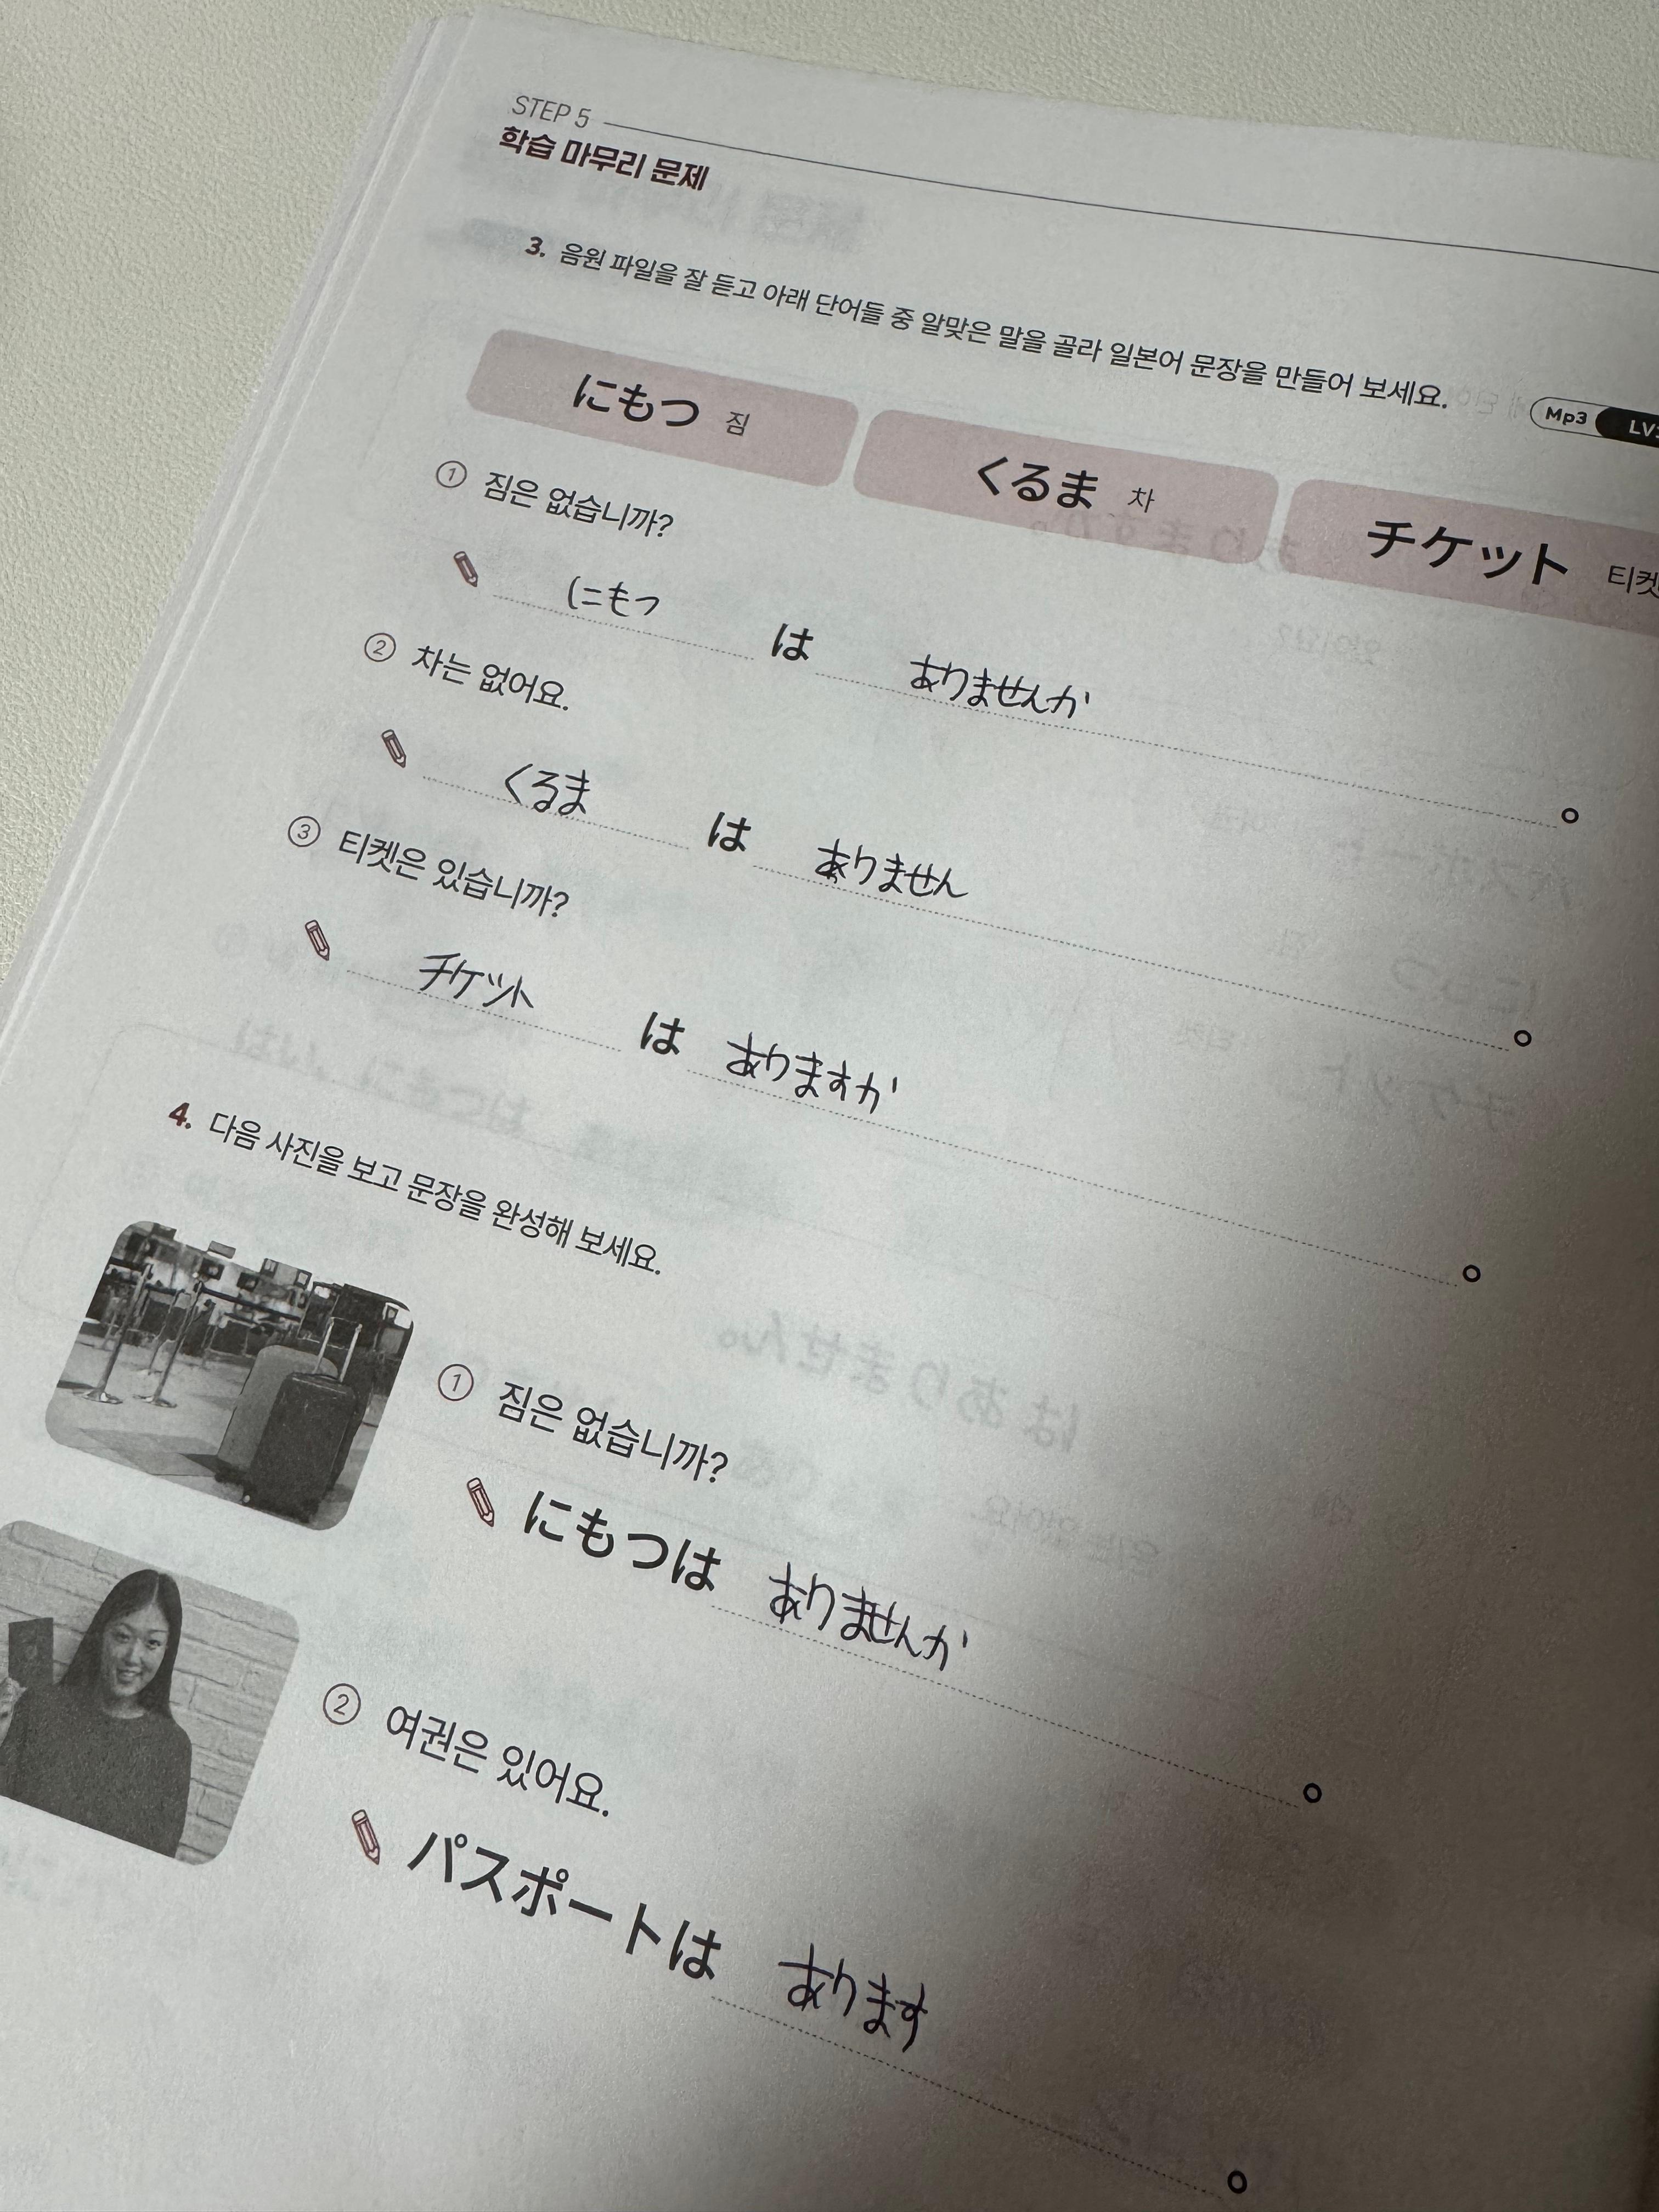 STEP 5
학습 마무리 문제
3. 음원 파일을 잘 듣고 아래 단어들 중 알맞은 말을 골라 일본어 문장을 만들어 보세요.
Mp3
にもつ 짐 くるま 차 チケット 티켓
① 짐은 없습니까?
にもつ は ありませんか 。
② 차는 없어요.
くるま は ありません 。
③ 티켓은 있습니까?
チケット は ありますか 。
4. 다음 사진을 보고 문장을 완성해 보세요.
① 짐은 없습니까?
にもつは ありませんか 。
② 여권은 있어요.
パスポートは あります 。